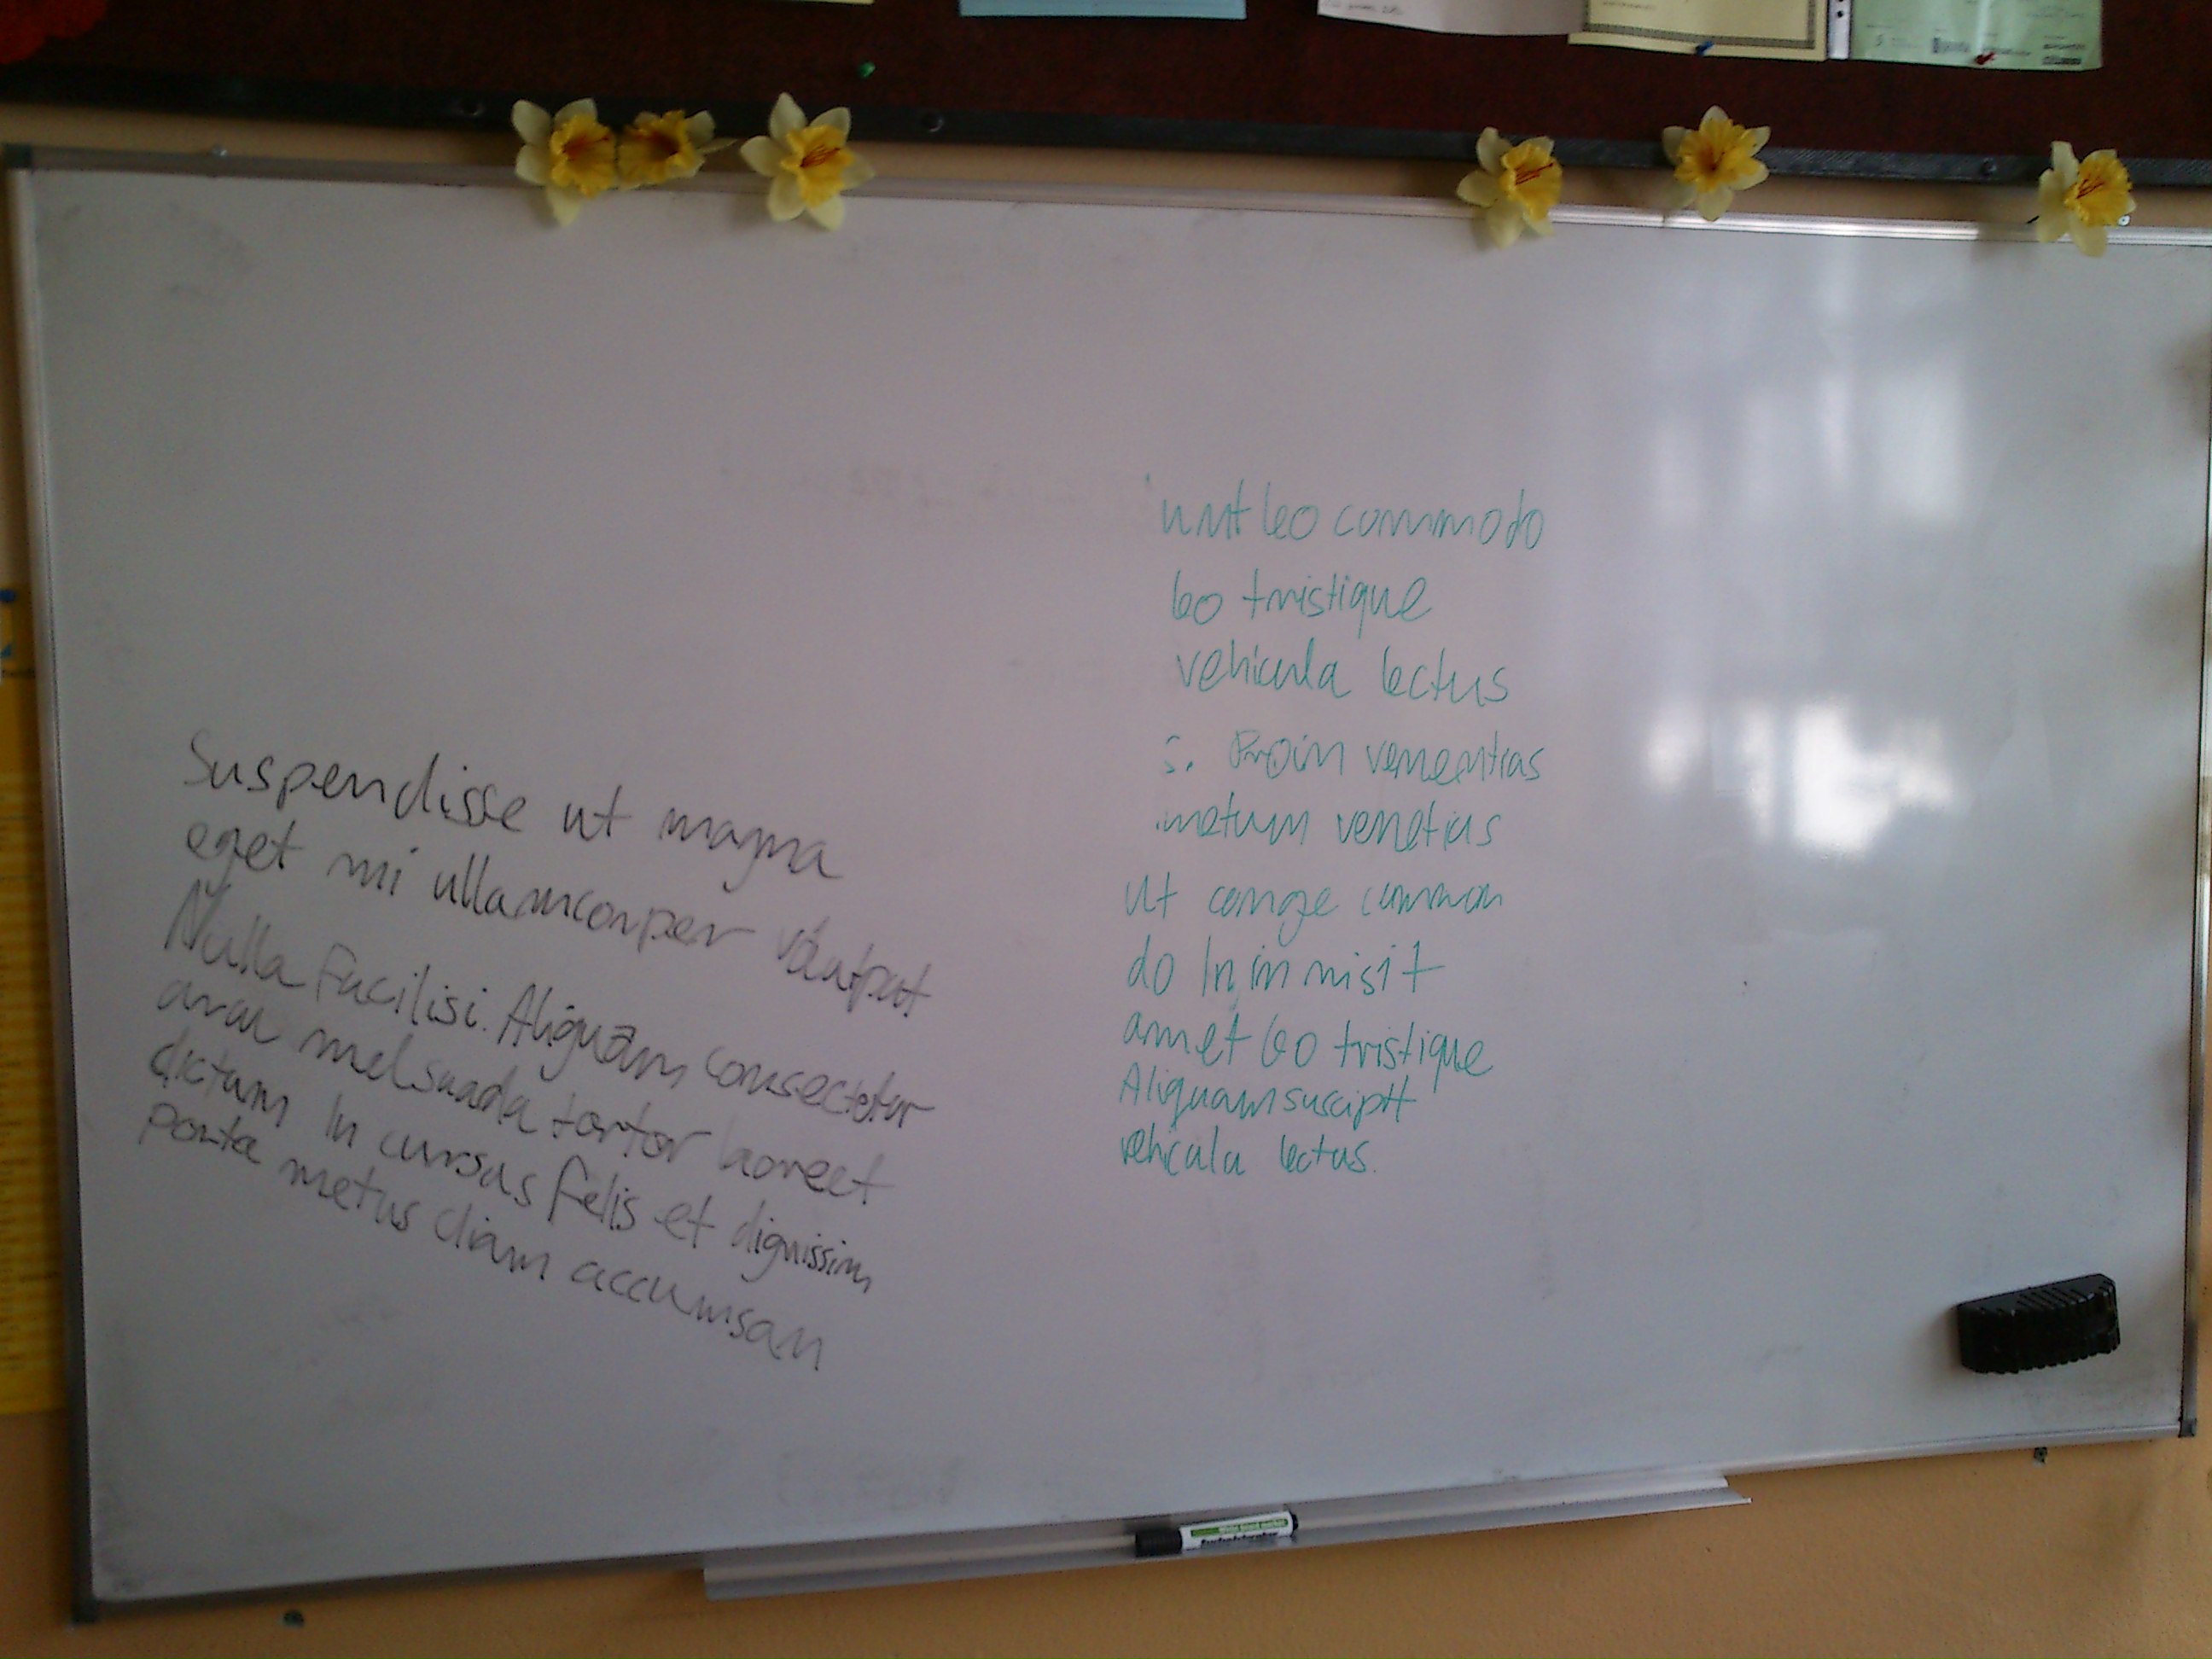 Suspendisse ut magna
eget mi ullamcorper volutpat
Nulla facilisi. Aliquam consectetur
arcu melsuada tortor laoreet
dictum In cursus felis et dignissim
porta metus diam accumsan
leo commodo
leo tristique
vehicula lectus
s. Proin
venetius
ut congе common
do In in nisi t
amet leo tristique
Aliquam suscipit
vehicula lectus.